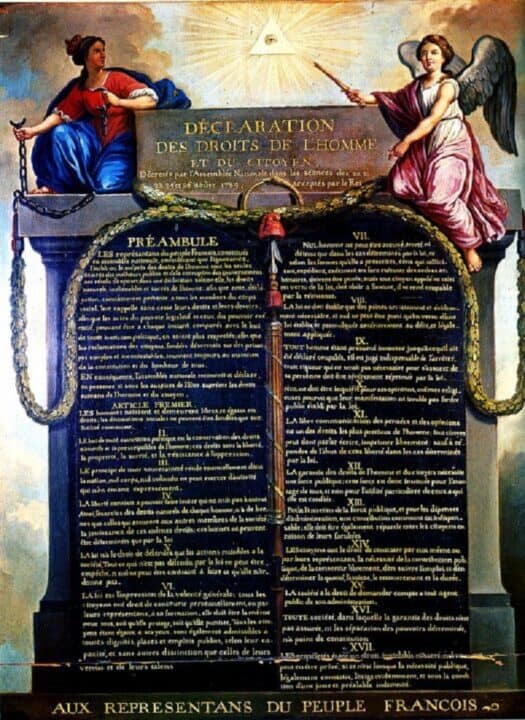 DÉCLARATION
DES DROITS DE L'HOMME
ET DU CITOYEN,
Décretés par l'Assemblée Nationale dans les séances des 20. 21.
23. 24 et 26 août 1789, acceptés par le Roi
PRÉAMBULE
LES représentans du peuple François, constitués
en assemblée nationale, considérant que l'ignorance,
l'oubli ou le mépris des droits de l'homme sont les seules
causes des malheurs publics et de la corruption des gouvernemens
ont résolu d'exposer dans une déclaration solemnelle, les droits
naturels, inaliénables et sacrés de l'homme; afin que cette décla
ration, constamment présente à tous les membres du corps
social, leur rappelle sans cesse leurs droits et leurs devoirs;
afin que les actes du pouvoir législatif et ceux du pouvoir exé
cutif, pouvant être à chaque instant comparés avec le but
de toute institution politique, en soient plus respectés; afin que
les réclamations des citoyens, fondées désormais sur des princi
pes simples et incontestables, tournent toujours au maintien
de la constitution et du bonheur de tous.
EN conséquence, l'assemblée nationale reconnoit et déclare,
en présence et sous les auspices de l'Etre suprême les droits
suivans de l'homme et du citoyen.
ARTICLE PREMIER.
LES hommes naissent et demeurent libres et égaux en
droits; les distinctions sociales ne peuvent être fondées que sur
l'utilité commune.
II.
LE but de toute association politique est la conservation des droits
naturels et imprescriptibles de l'homme; ces droits sont la liberté,
la propriété, la sureté, et la résistance à l'oppression.
III.
LE principe de toute souveraineté réside essentiellement dans
la nation, nul corps, nul individu ne peut exercer d'autorité
qui n'en émane expressément.
IV.
LA liberté consiste à pouvoir faire tout ce qui ne nuit pas à autrui
Ainsi, l'exercice des droits naturels de chaque homme, n'a de bor
nes que celles qui assurent aux autres membres de la société
la jouissance de ces mêmes droits; ces bornes ne peuvent
être déterminées que par la loi
V.
LA loi n'a le droit de défendre que les actions nuisibles à la
société. Tout ce qui n'est pas défendu par la loi ne peut être
empêché, et nul ne peut être contraint à faire ce qu'elle n'or
donne pas.
VI.
LA loi est l'expression de la volonté générale; tous les
citoyens ont droit de concourir personnellement, ou par
leurs représentans, à sa formation; elle doit être la même
pour tous, soit qu'elle protege, soit qu'elle punisse, Tous les cito
yens étant égaux à ses yeux, sont également admissibles à
toutes dignités, places et emplois publics, selon leur ca
pacité, et sans autres distinction que celles de leurs
vertus et de leurs talens.
VII.
NUL homme ne peut être accusé, arreté ni
détenu que dans les cas déterminés par la loi, et
selon les formes qu'elle a prescrites, ceux qui sollici
tent, expédient, exécutent ou font exécuter des ordres ar
bitraires, doivent être punis; mais tout citoyen appelé ou saisi
en vertu de la loi, doit obéir à l'instant, il se rend coupable
par la résistance.
VIII.
LA loi ne doit établir que des peines strictement et évidem
ment nécessaires, et nul ne peut être puni qu'en vertu d'une
loi établie et promulguée antérieurement au délit, et légale
ment appliquée.
IX.
TOUT homme étant présumé innocent jusqu'à ce qu'il ait
été déclaré coupable, s'il est jugé indispensable de l'arrêter,
toute rigueur qui ne serait pas nécessaire pour s'assurer de
sa personne doit être sévèrement réprimée par la loi.
NUL ne doit être inquiété pour ses opinions, mêmes religi
euses pourvu que leur manifestation ne trouble pas l'ordre
public établi par la loi.
XI.
LA libre communication des pensées et des opinions
est un des droits les plus précieux de l'homme; tout citoyen
peut donc parler écrire, imprimer librement: sauf à ré
pondre de l'abus de cette liberté dans les cas déterminés
par la loi.
XII.
LA garantie des droits de l'homme et du citoyen nécessite
une force publique; cette force est donc instituée pour l'avan
tage de tous, et non pour l'utilité particulière de ceux à qui
elle est confiée.
XIII.
Pour l'entretien de la force publique, et pour les dépenses
d'administration, une contribution commune est indispen
sable; elle doit être également répartie entre les citoyens en
raison de leurs facultés
XIV.
LES citoyens ont le droit de constater par eux même ou
par leurs représentans, la nécessité de la contribution pub
lique, de la consentir librement, d'en suivre l'emploi, et d'en
déterminer la quotité, l'assiette, le recouvrement et la durée.
XV.
LA société a le droit de demander compte à tout agent
public de son administration.
XVI.
TOUTE société, dans laquelle la garantie des droits n'est
pas assurée, ni la séparation des pouvoirs déterminée,
n'a point de constitution.
XVII.
LES propriétés étant un droit inviolable et sacré, nul ne
peut en être privé, si ce n'est lorsque la nécessité publique,
légalement constatée, l'exige évidemment, et sous la condi
tion d'une juste et préalable indemnité.
AUX REPRESENTANS DU PEUPLE FRANCOIS